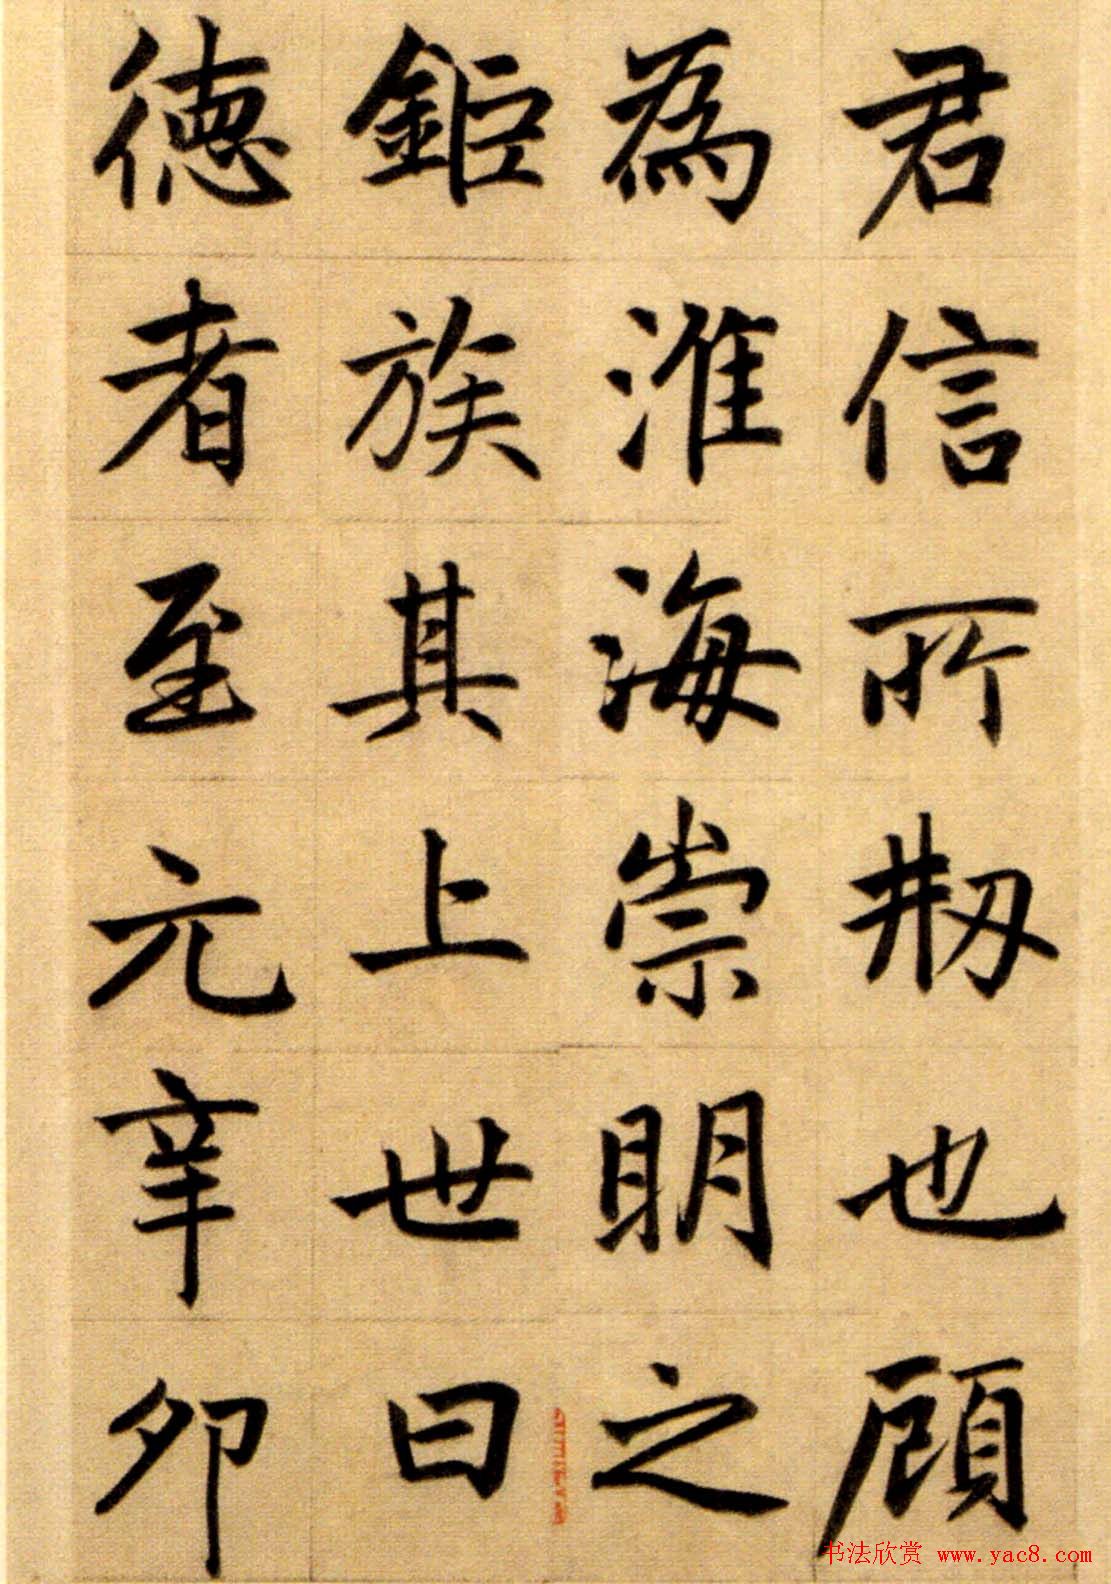 君信所刱也顧
為淮海崇明之
鉅族其上世曰
德者至元辛卯
书法欣赏 www.yac8.com